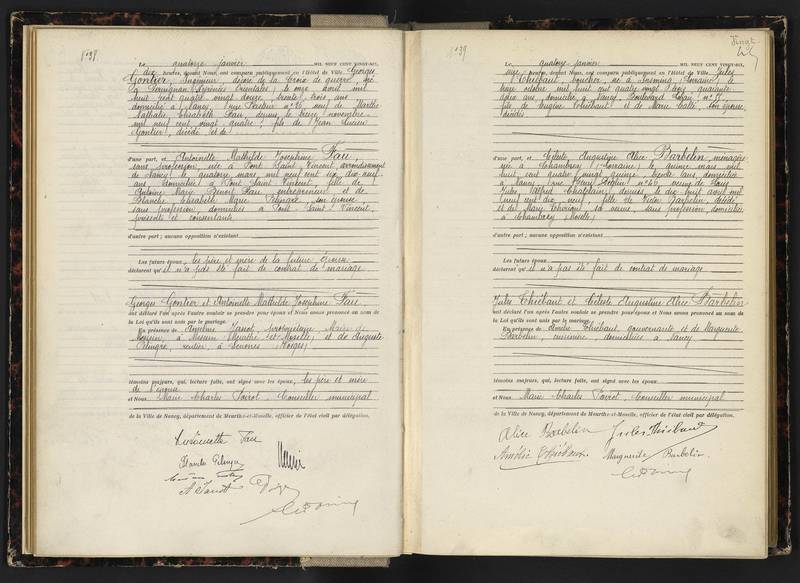 N° 38
Le quatorze janvier MIL NEUF CENT VINGT-SIX,
dix heures, devant Nous, ont comparu publiquement en l'Hôtel de Ville Georges
Gontier, Ingénieur, décoré de la Croix de guerre, né
à Perpignan (Pyrénées Orientales) le onze avril mil
huit cent quatre vingt douze, trente trois ans,
domicilié à Nancy, rue Pasteur n° 26, veuf de Marthe
Nathalie Elisabeth Fau, depuis le treize novembre
mil neuf cent vingt quatre; fils de Jean Lucien
Gontier, décédé et de
d'une part, et Antoinette Mathilde Joséphine Fau,
sans profession, née à Pont Saint Vincent, arrondissement
de Nancy, le quatorze mars mil neuf cent dix-neuf
ans, domiciliée à Pont Saint Vincent, fille de
Antoine Marie Benoit Fau, entrepreneur et de
Blanche Elisabeth Marie Pelingre, son épouse
sans profession, domiciliés à Pont Saint Vincent,
présents et consentants
d'autre part ; aucune opposition n'existant
Les futurs époux, les père et mère de la future épouse
déclarent qu'il n'a pas été fait de contrat de mariage
Georges Gontier et Antoinette Mathilde Joséphine Fau
ont déclaré l'un après l'autre vouloir se prendre pour époux et Nous avons prononcé au nom de
la Loi qu'ils sont unis par le mariage.
En présence de propriétaire, Maire de
Messein, à Messein (Meurthe et Moselle) et de Auguste
Pelingre, rentier, à Senones (Vosges)
témoins majeurs, qui, lecture faite, ont signé avec les époux, les père et mère
de l'épouse
et Nous, Marie Charles Poirot, Conseiller municipal
de la Ville de Nancy, département de Meurthe-et-Moselle, officier de l'état civil par délégation.
Antoinette Fau
N° 39
Vingt
Le quatorze janvier MIL NEUF CENT VINGT-SIX,
onze heures, devant Nous, ont comparu publiquement en l'Hôtel de Ville Jules
Thiébaut, boucher, né à Insming (Lorraine) le
treize octobre mil huit cent quatre vingt cinq, quarante
ans, domicilié à Nancy, Boulevard Lobau n°
fils de Eugène Thiébaut et de Marie Collé, son épouse,
décédés
d'une part, et Céleste Augustine Alice Barbelin, ménagère
née à Chambrey (Lorraine) le quinze mars mil
huit cent quatre vingt quinze, trente ans, domiciliée
à Nancy, rue n° 46, veuve de Louis
Jules Alfred Chatelain, depuis le dix huit avril mil
neuf cent dix neuf, fille de Victor Barbelin, décédé
et de Marie sa veuve, sans profession, domiciliée
à Chambrey (Moselle)
d'autre part ; aucune opposition n'existant
Les futurs époux
déclarent qu'il n'a pas été fait de contrat de mariage
Jules Thiébaut et Céleste Augustine Alice Barbelin
ont déclaré l'un après l'autre vouloir se prendre pour époux et Nous avons prononcé au nom de
la Loi qu'ils sont unis par le mariage.
En présence de Amélie Thiébaut, gouvernante et de Marguerite
Barbelin, cuisinière, domiciliées à Nancy
témoins majeurs, qui, lecture faite, ont signé avec les époux
et Nous, Marie Charles Poirot, Conseiller municipal
de la Ville de Nancy, département de Meurthe-et-Moselle, officier de l'état civil par délégation.
Alice Barbelin Jules Thiébaut
Amélie Thiébaut Marguerite Barbelin